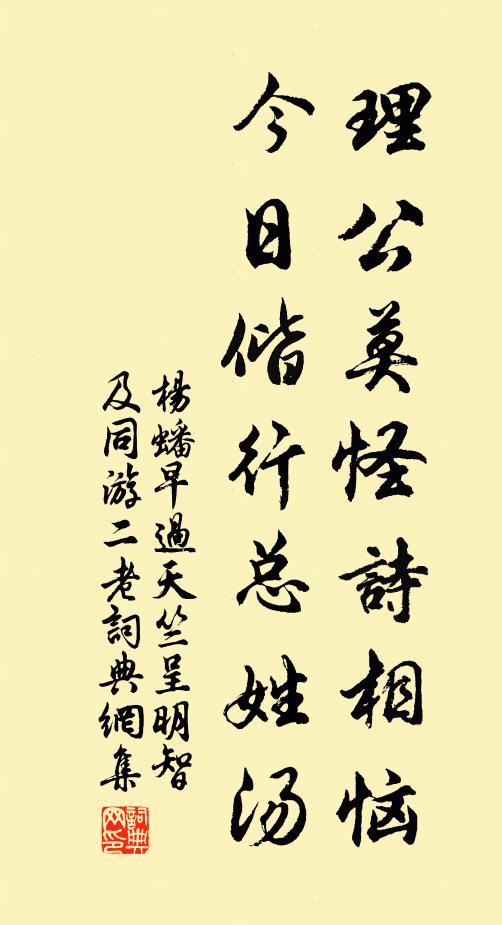 理公莫怪詩相恼
今日偕行总姓汤
楊蟠早過天竺呈明智
及同游二老詞典網集
詞典网印